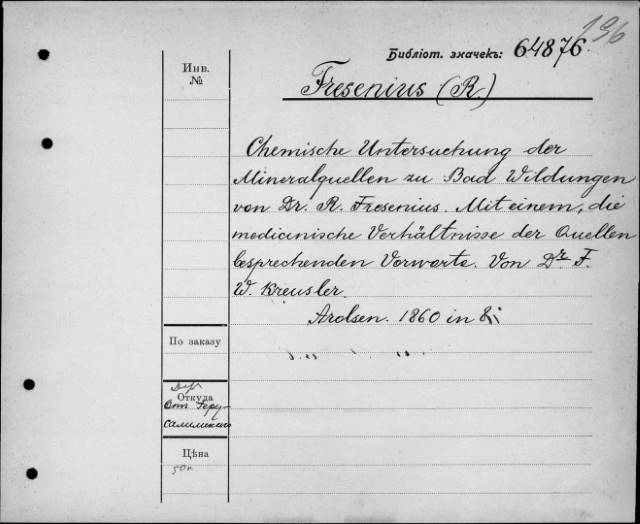 196
Библіот. значекъ: 64876
Инв.
№
Fresenius (R.)
Chemische Untersuchung der
Mineralquellen zu Bad Wildungen
von Dr. R. Fresenius. Mit einem, die
medicinische Verhältnisse der Quellen
besprechenden Vorworte. Von Dr F.
W. Kreusler.
Arolsen. 1860 in 8;
По заказу
Откуда
Цѣна
50к